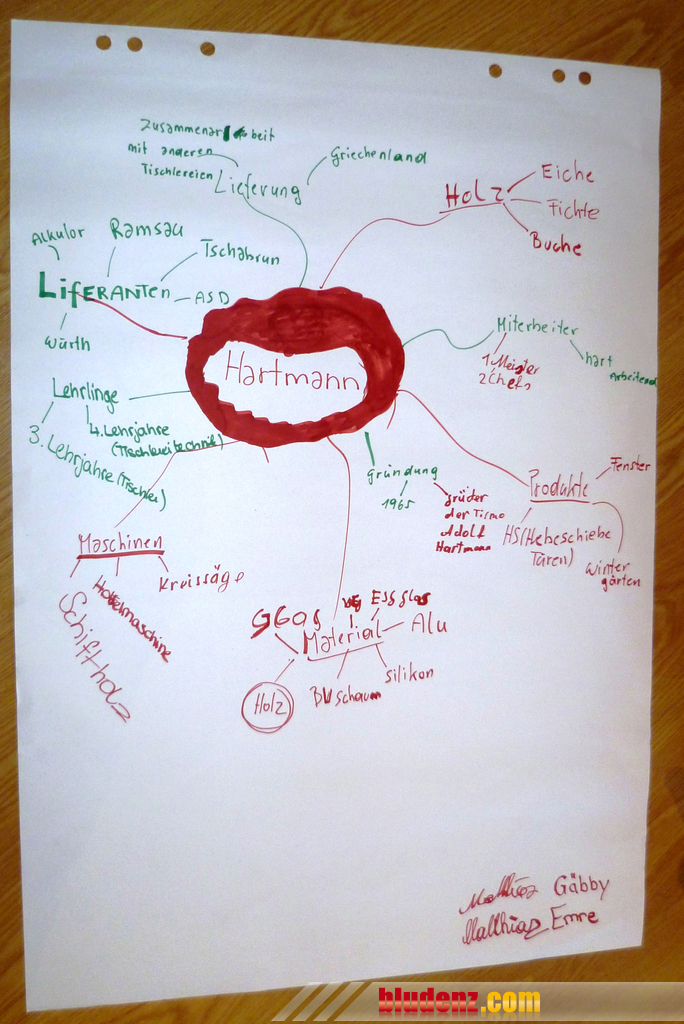 Zusammenarbeit
mit anderen
Tischlereien
Lieferung
Griechenland
Holz
Eiche
Fichte
Buche
Alkulor
Ramsau
Tschabrun
LifERANTEn
ASD
würth
Hartmann
Miterbeiter
1 Meister
2 Chefs
hart
Arbeitend
Lehrlinge
4. Lehrjahre
(Tischlereitechnik)
3. Lehrjahre (Tischler)
Gründung
1965
der Firma
Adolf
Hartmann
Produkte
Fenster
HS (Hebeschiebe
Türen)
Winter
gärten
Maschinen
Kreissäge
Hobelmaschine
Schiftholz
Material
Glas
Alu
Silikon
Holz
Gäbby
Matthias Emre
bludenz.com